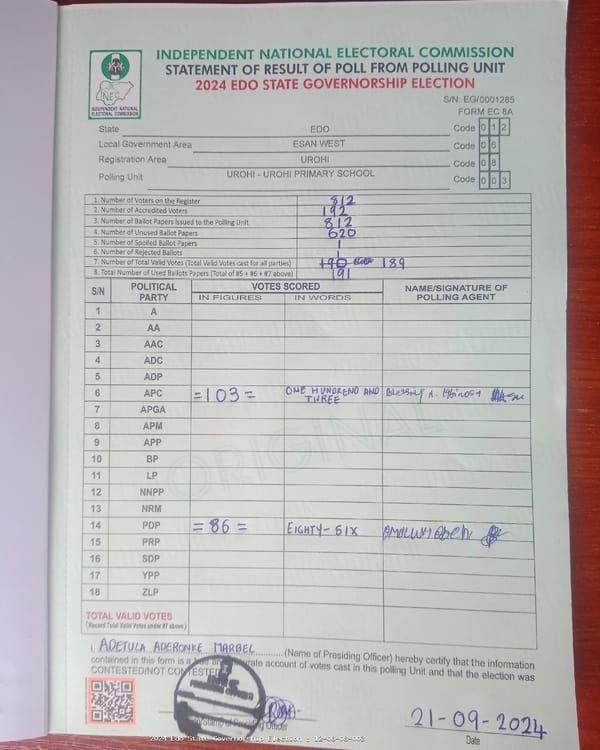 INDEPENDENT NATIONAL ELECTORAL COMMISSION
STATEMENT OF RESULT OF POLL FROM POLLING UNIT
2024 EDO STATE GOVERNORSHIP ELECTION
INEC
INDEPENDENT NATIONAL
ELECTORAL COMMISSION
S/N: EG/0001285
FORM EC 8A
State EDO Code 0 1 2
Local Government Area ESAN WEST Code 0 6
Registration Area UROHI Code 0 8
Polling Unit UROHI - UROHI PRIMARY SCHOOL Code 0 0 3
1. Number of Voters on the Register 812
2. Number of Accredited Voters 192
3. Number of Ballot Papers Issued to the Polling Unit 812
4. Number of Unused Ballot Papers 620
5. Number of Spoiled Ballot Papers 1
6. Number of Rejected Ballots 1
7. Number of Total Valid Votes (Total Valid Votes cast for all parties) 190 189
8. Total Number of Used Ballots Papers (Total of #5 + #6 + #7 above) 191
S/N POLITICAL PARTY VOTES SCORED NAME/SIGNATURE OF POLLING AGENT
IN FIGURES IN WORDS
1 A
2 AA
3 AAC
4 ADC
5 ADP
6 APC =103= ONE HUNDREND AND THREE Blessing A.
7 APGA
8 APM
9 APP
10 BP
11 LP
12 NNPP
13 NRM
14 PDP =86= EIGHTY-SIX
15 PRP
16 SDP
17 YPP
18 ZLP
ORIGINAL
TOTAL VALID VOTES
(Record Total Valid Votes under #7 above)
I, ADETULA ADERONKE MARBEL (Name of Presiding Officer) hereby certify that the information
contained in this form is a true and accurate account of votes cast in this polling Unit and that the election was
CONTESTED/NOT CONTESTED
21-09-2024
Date
2024 Edo State Governorship Election : 12-06-08-003